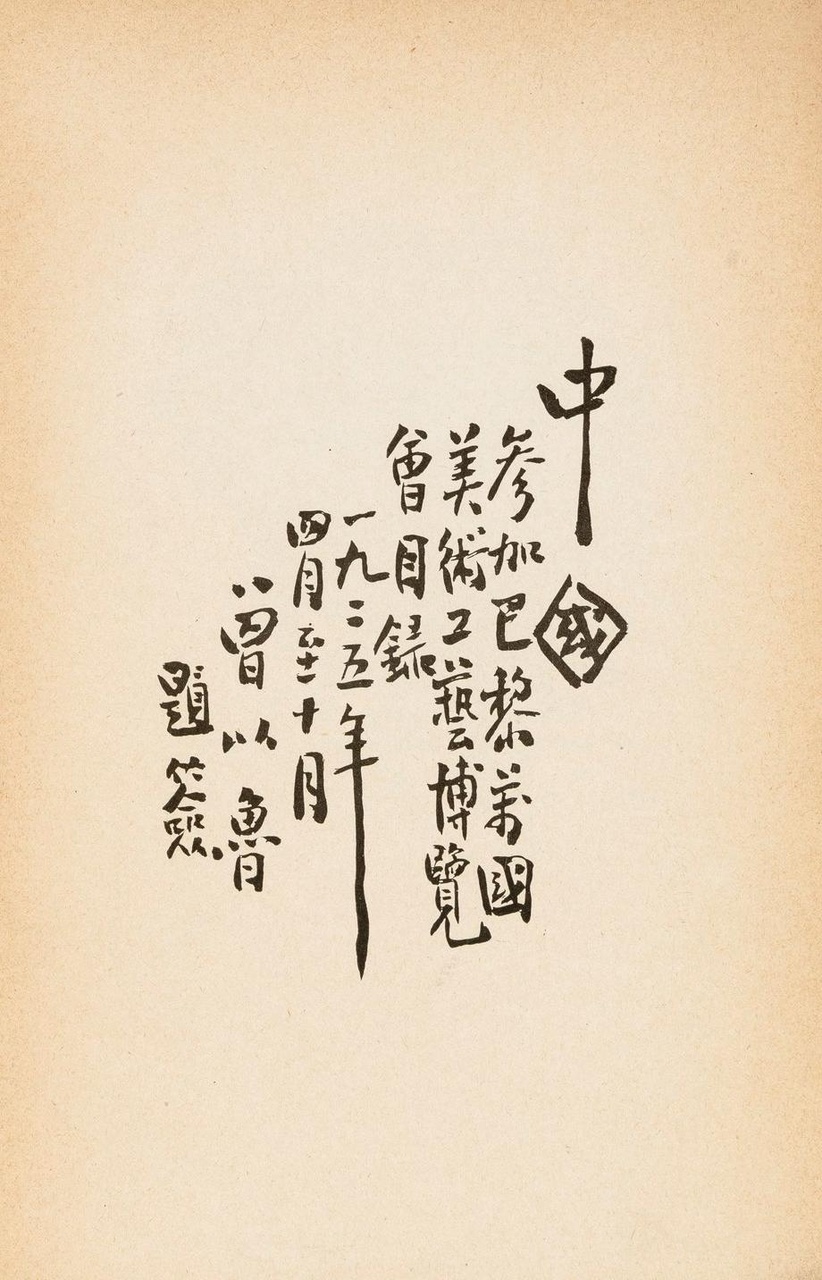 中國
參加巴黎萬國
美術工藝博覽
會目錄
一九二五年
四月至十月
曾以魯
題簽